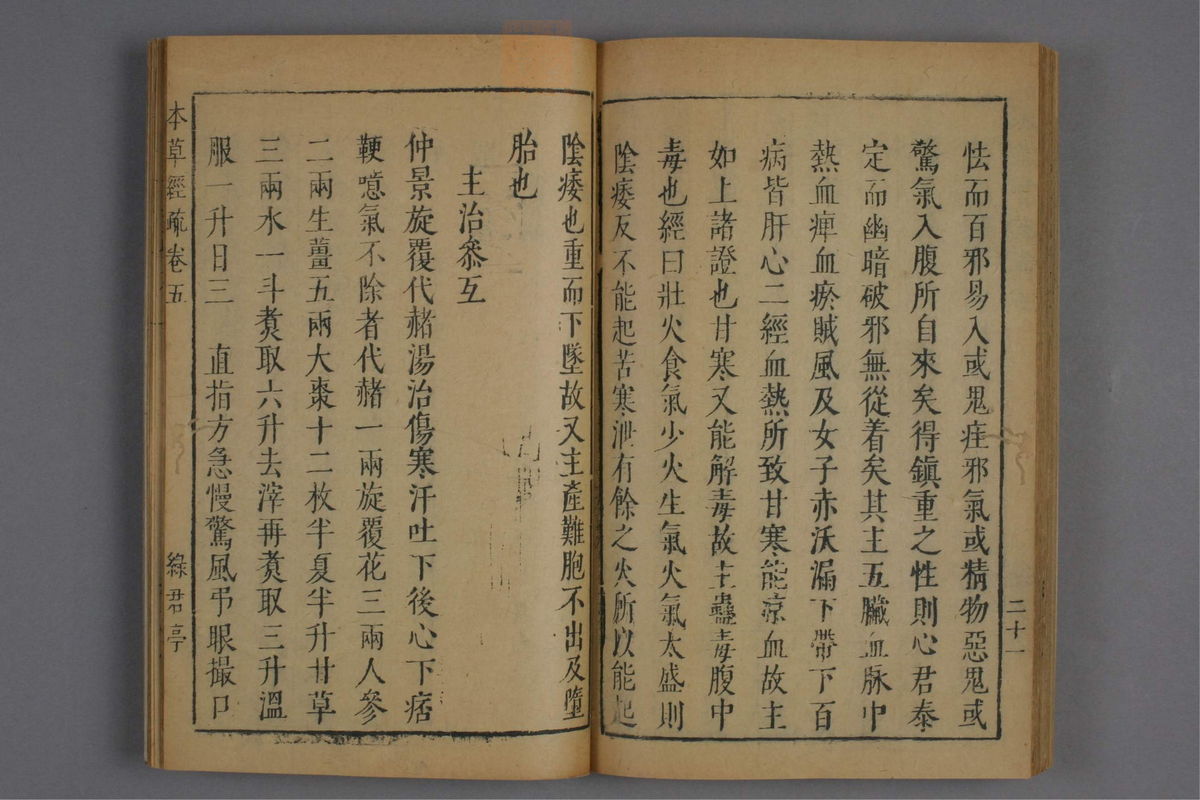 怯而百邪易入或鬼疰邪氣或精物惡鬼或
驚氣入腹所自來矣得鎮重之性則心君泰
定而幽暗破邪無從着矣其主五臟血脉中
熱血痺血瘀賊風及女子赤沃漏下帶下百
病皆肝心二經血熱所致甘寒能凉血故主
如上諸證也甘寒又能解毒故主蠱毒腹中
毒也經曰壯火食氣少火生氣火氣太盛則
陰痿反不能起苦寒泄有餘之火所以能起
二十一
陰痿也重而下墜故又主產難胞不出及墮
胎也
主治叅互
仲景旋覆代赭湯治傷寒汗吐下後心下痞
鞕噫氣不除者代赭一兩旋覆花三兩人參
二兩生薑五兩大棗十二枚半夏半升甘草
三兩水一斗煑取六升去滓再煑取三升溫
服一升日三 直指方急慢驚風弔眼撮口
本草經疏卷五 綠君亭